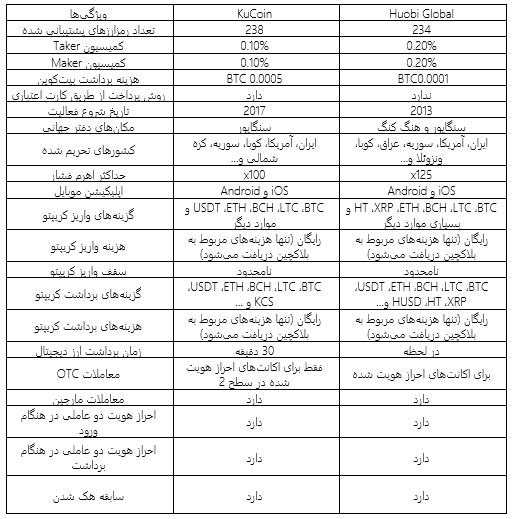 ویژگی‌ها KuCoin Huobi Global
تعداد رمزارزهای پشتیبانی شده 238 234
کمیسیون Taker 0.10% 0.20%
کمیسیون Maker 0.10% 0.20%
هزینه برداشت بیت‌کوین BTC 0.0005 BTC0.0001
روش پرداخت از طریق کارت اعتباری دارد ندارد
تاریخ شروع فعالیت 2017 2013
مکان‌های دفتر جهانی سنگاپور سنگاپور و هنگ کنگ
کشورهای تحریم شده ایران، آمریکا، کوبا، سوریه، کره
شمالی و... ایران، آمریکا، سوریه، عراق، کوبا،
ونزوئلا و...
حداکثر اهرم فشار x100 x125
اپلیکیشن موبایل iOS و Android iOS و Android
گزینه‌های واریز کریپتو BTC، LTC، BCH، ETH، USDT و
موارد دیگر BTC، LTC، BCH، ETH، XRP، HT و
بسیاری موارد دیگر
هزینه واریز کریپتو رایگان (تنها هزینه‌های مربوط به
بلاکچین دریافت می‌شود) رایگان (تنها هزینه‌های مربوط به
بلاکچین دریافت می‌شود)
سقف واریز کریپتو نامحدود نامحدود
گزینه‌های برداشت کریپتو BTC، LTC، BCH، ETH، USDT،
KCS و ... BTC، LTC، BCH، ETH، USDT،
XRP، HT، HUSD و...
هزینه‌های برداشت کریپتو رایگان (تنها هزینه‌های مربوط به
بلاکچین دریافت می‌شود) رایگان (تنها هزینه‌های مربوط به
بلاکچین دریافت می‌شود)
زمان برداشت ارز دیجیتال 30 دقیقه در لحظه
معاملات OTC فقط برای اکانت‌های احراز هویت
شده در سطح 2 برای اکانت‌های احراز هویت شده
معاملات مارجین دارد دارد
احراز هویت دو عاملی در هنگام
ورود دارد دارد
احراز هویت دو عاملی در هنگام
برداشت دارد دارد
سابقه هک شدن دارد دارد